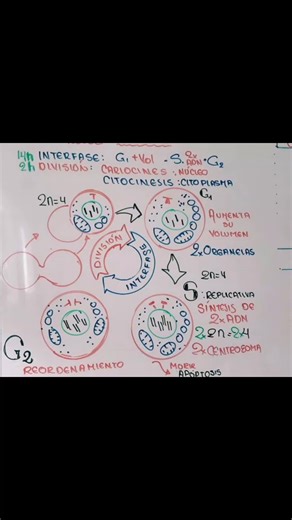 14h INTERFASE: G1 +Vol - S: 2x ADN - G2
2h DIVISIÓN: CARIOCINES: NÚCLEO
CITOCINESIS: CITOPLASMA
2n=4
G1
AUMENTA
SU
VOLUMEN
2xORGANELAS
2n=4
DIVISIÓN
INTERFASE
S: REPLICATIVA
SÍNTESIS DE
2xADN
2x CENTROSOMA
G2
REORDENAMIENTO
APÓPTOSIS